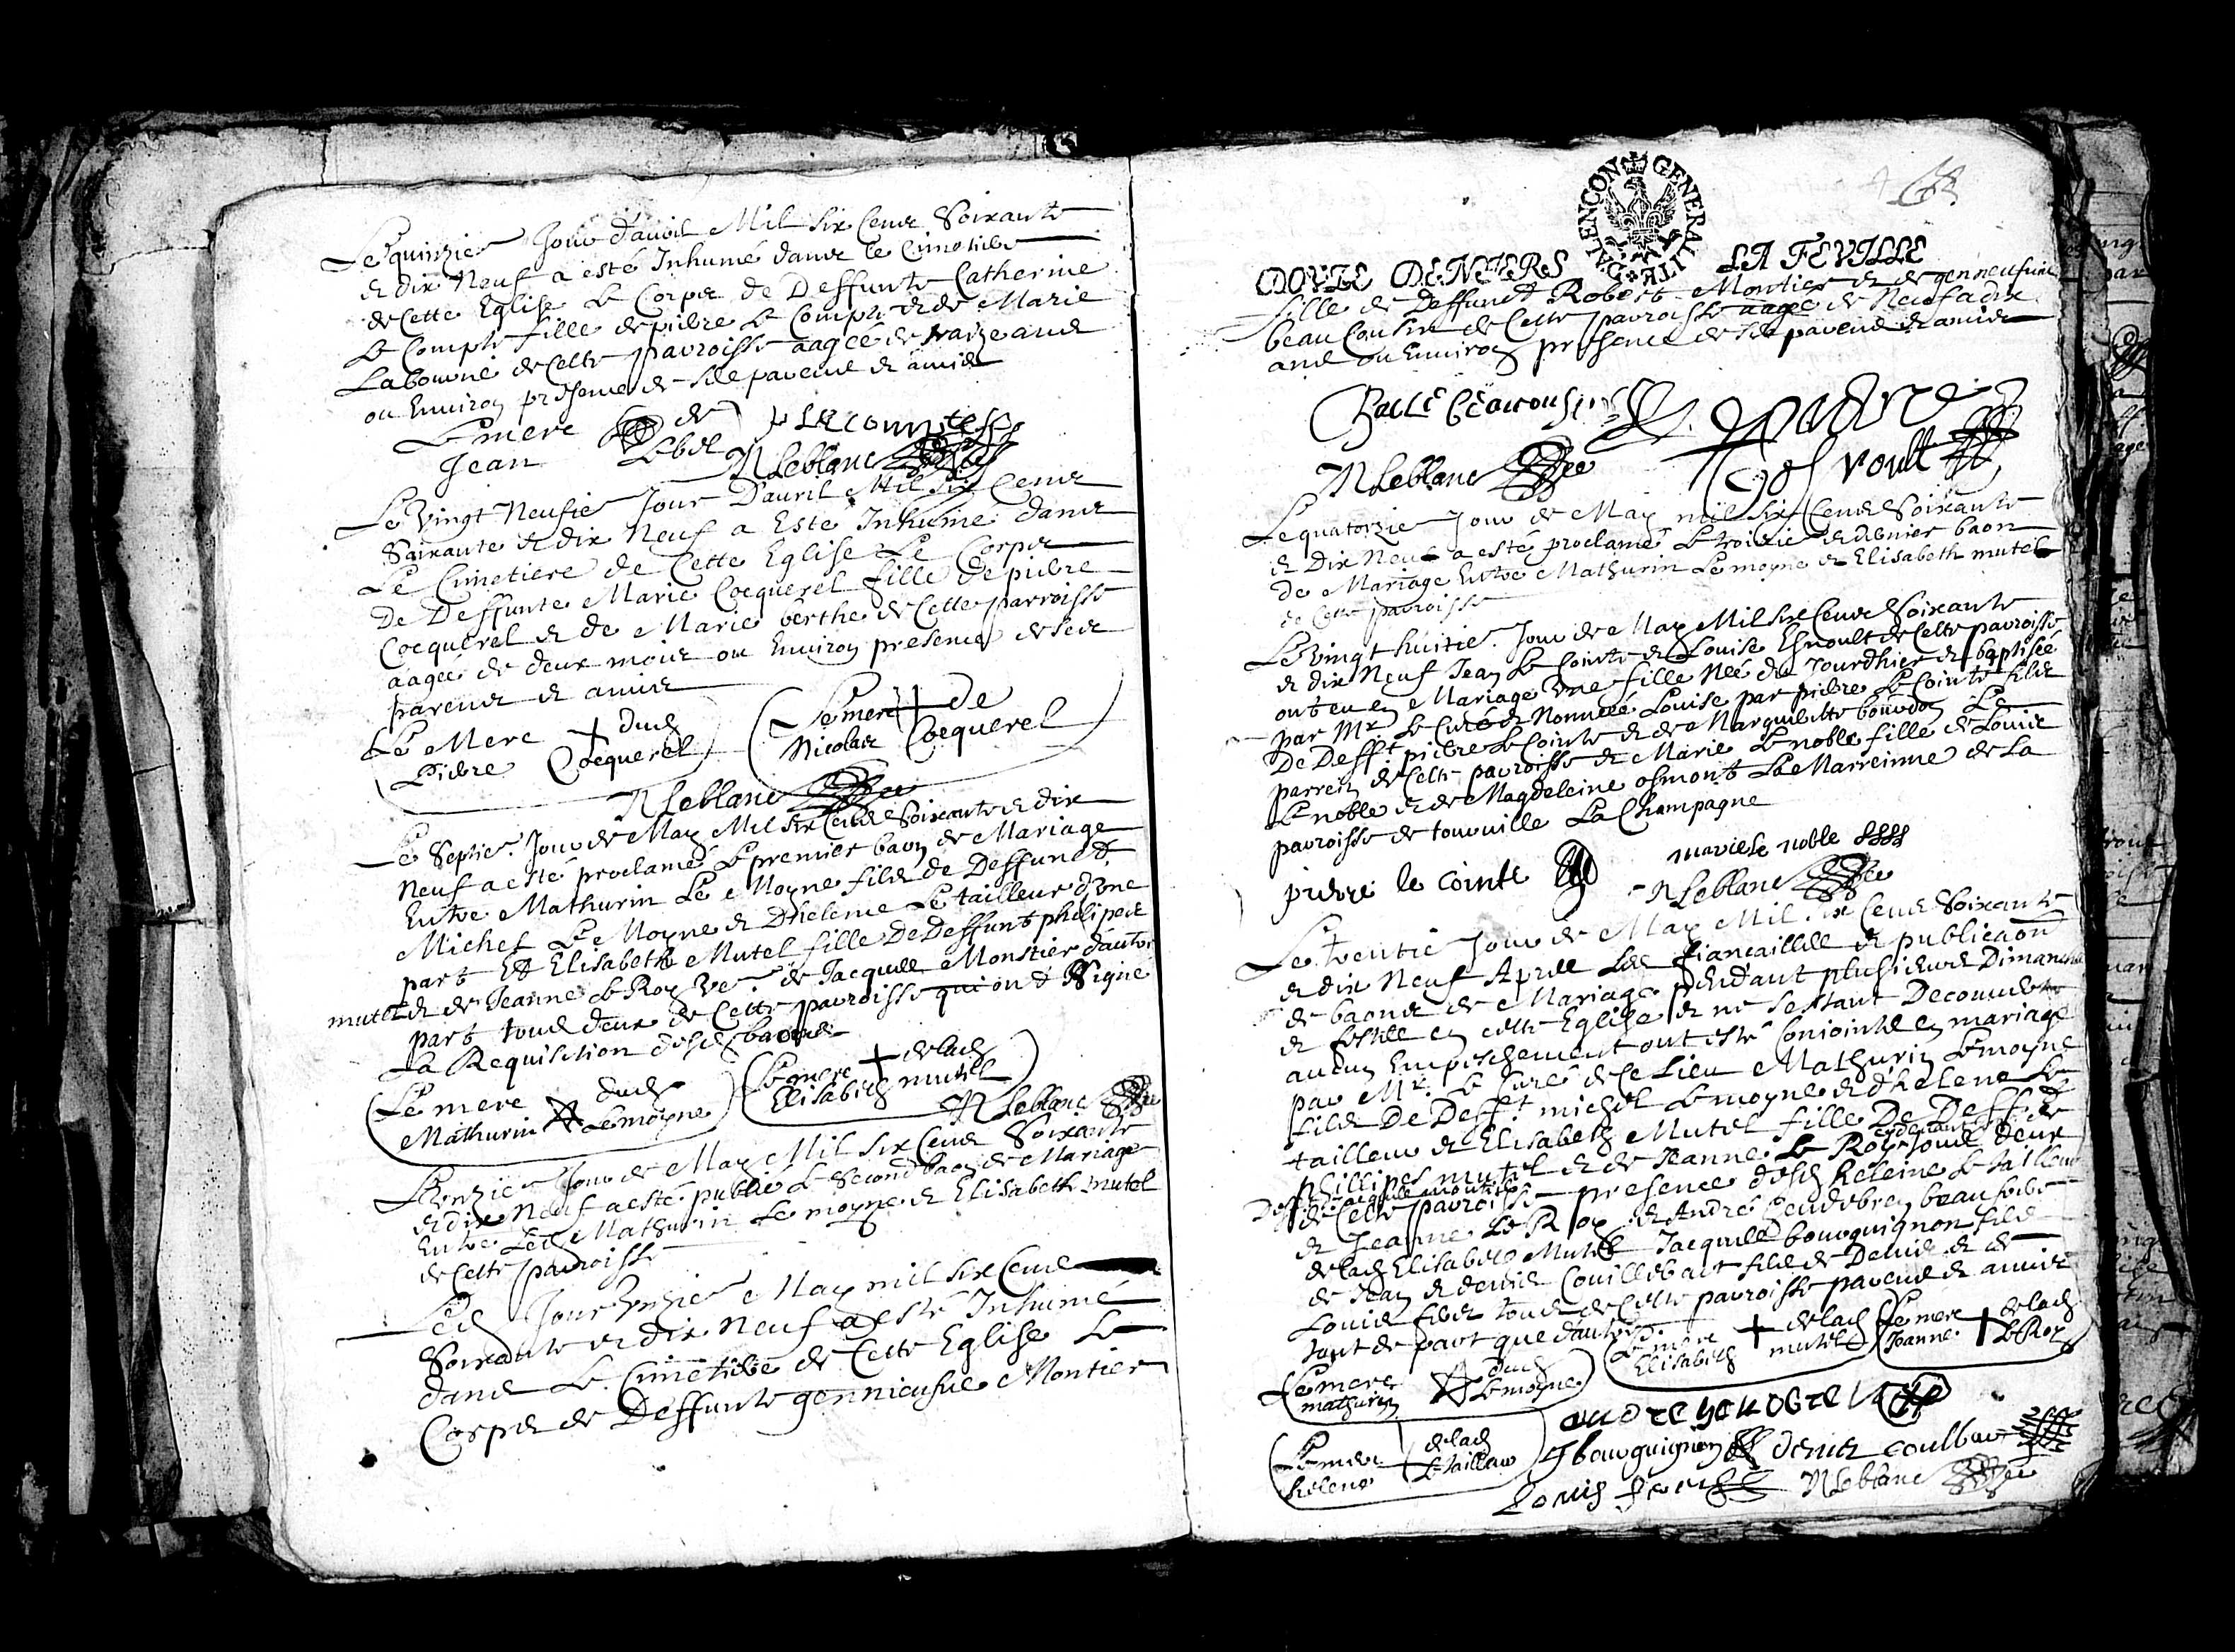 Le quinzie Jour d'auvil Mil six Cens Soixante
& dix Neuf a esté Inhumé dans le Cimetiere
de Cette Eglise le Corps de Deffunte Catherine
Le Compte fille de pierre Le Compte & de Marie
Labourne de Cette parroisse aagée de traize ans
ou Environ presence de sde parens & amis
Le merc de
Jean Lebel
p le compte
N Leblanc
Le Vingt Neufie Jour D'auril Mil six Cens
Soixante & dix Neuf a Esté Inhumé dans
Le Cimetiere de Cette Eglise Le Corps
de Deffunte Marie Cocquerel fille de pierre
Cocquerel & de Marie berthe de Cette parroisse
aagée de deux mois ou Environ presence de sede
parens & amis
Le Merc + dud
Pierre Cocquerel
Le merc + de
Nicolas Cocquerel
N Leblanc
Le Septie Jour de May Mil six Cens Soixante & dix
Neuf a esté proclamé Le premier baon de Mariage
Entre Mathurin Le Moyne fils de Deffunct
Michel Le Moyne & D'helene Le tailleur d'vne
part Et Elisabeth Mutel fille De Deffunt phelipes
mutel & de Jeanne le Roy ve de Jacques Monstier d'autre
part tous deux de Cette parroisse qui ont Signe
La Requisition desd baons
Le merc dud
Mathurin Lemoyne
Le merc + de lad
Elisabeth mutel
N Leblanc
L'onzie Jour de May Mil six Cens Soixante
& dix Neuf a esté publié Le Second baon de Mariage
Entre Led Mathurin Le moyne & Elisabeth mutel
de Cette parroisse
Led Jour vnzie May mil six Cens
Soixante & dix Neuf a esté Inhumé
dans Le Cimetiere de Cette Eglise Le
Corps de Deffunte gennieufue Montier
GENERALITE D'ALENCON
DOVZE DENIERS LA FEVILLE
fille de Deffunct Robert Montier & de genneufuie
beaucousin de Cette parroisse aage de Neuf a dix
ans ou Environ presence de sde parens & amis
N Leblanc
Le quatorzie Jour de May mil six Cens Soixante
& Dix Neuf a esté proclamé Le troisie & dernier baon
de Mariage Entre Mathurin Lemoyne & Elisabeth mutel
de Cette parroisse
Le vingt huitie Jour de May Mil six Cens Soixante
& dix Neuf Jean Le Cointe & Louise Esnoult de Cette parroisse
ont eu en Mariage vne fille Née du Jourdhier & baptisée
par Mr Le Curé & Nommée Louise par pierre Le Cointe fils
De Defft pierre Le Cointe & de Marguerite bourdon Le
parrein de Cette parroisse & Marie Le noble fille de Louis
Le noble & de Magdeleine osmont La Marreinne de La
parroisse de tourville La Champagne
pierre le cointe
marie le noble
N Leblanc
Le trentie Jour de May Mil six Cens Soixante
& dix Neuf Apres Les fiancailles & publicaon
de baons de Mariage pendant plusieurs Dimanches
& festes en cette Eglise & ne sestant Decouvert
aucun Empeschement ont esté Conjoints en mariage
par Mr Le Curé de Ce Lieu Mathurin Lemoyne
fils De Defft michel Lemoyne & d'helene Le
tailleur & Elisabeth Mutel fille De Defft
phillipes mutel & de Jeanne Le Roy tous deux
de Cette parroisse presence desd heleine Le tailleur
& Jeanne Le Roy & André beaufrere
de lad Elisabeth Mutel Jacques bourguignon fils
de Jean & denis Couillebaut fils de Denis & de
Louis tous de Cette parroisse parens & amis
tant de part que d'autre
Le merc + de lad
Elisabeth mutel
Le merc + de lad
Jeanne Le Roy
Le merc dud
mathurin Lemoyne
Le merc + de lad
helene Le tailleur
J bourguignon
denis
Louis
N Leblanc